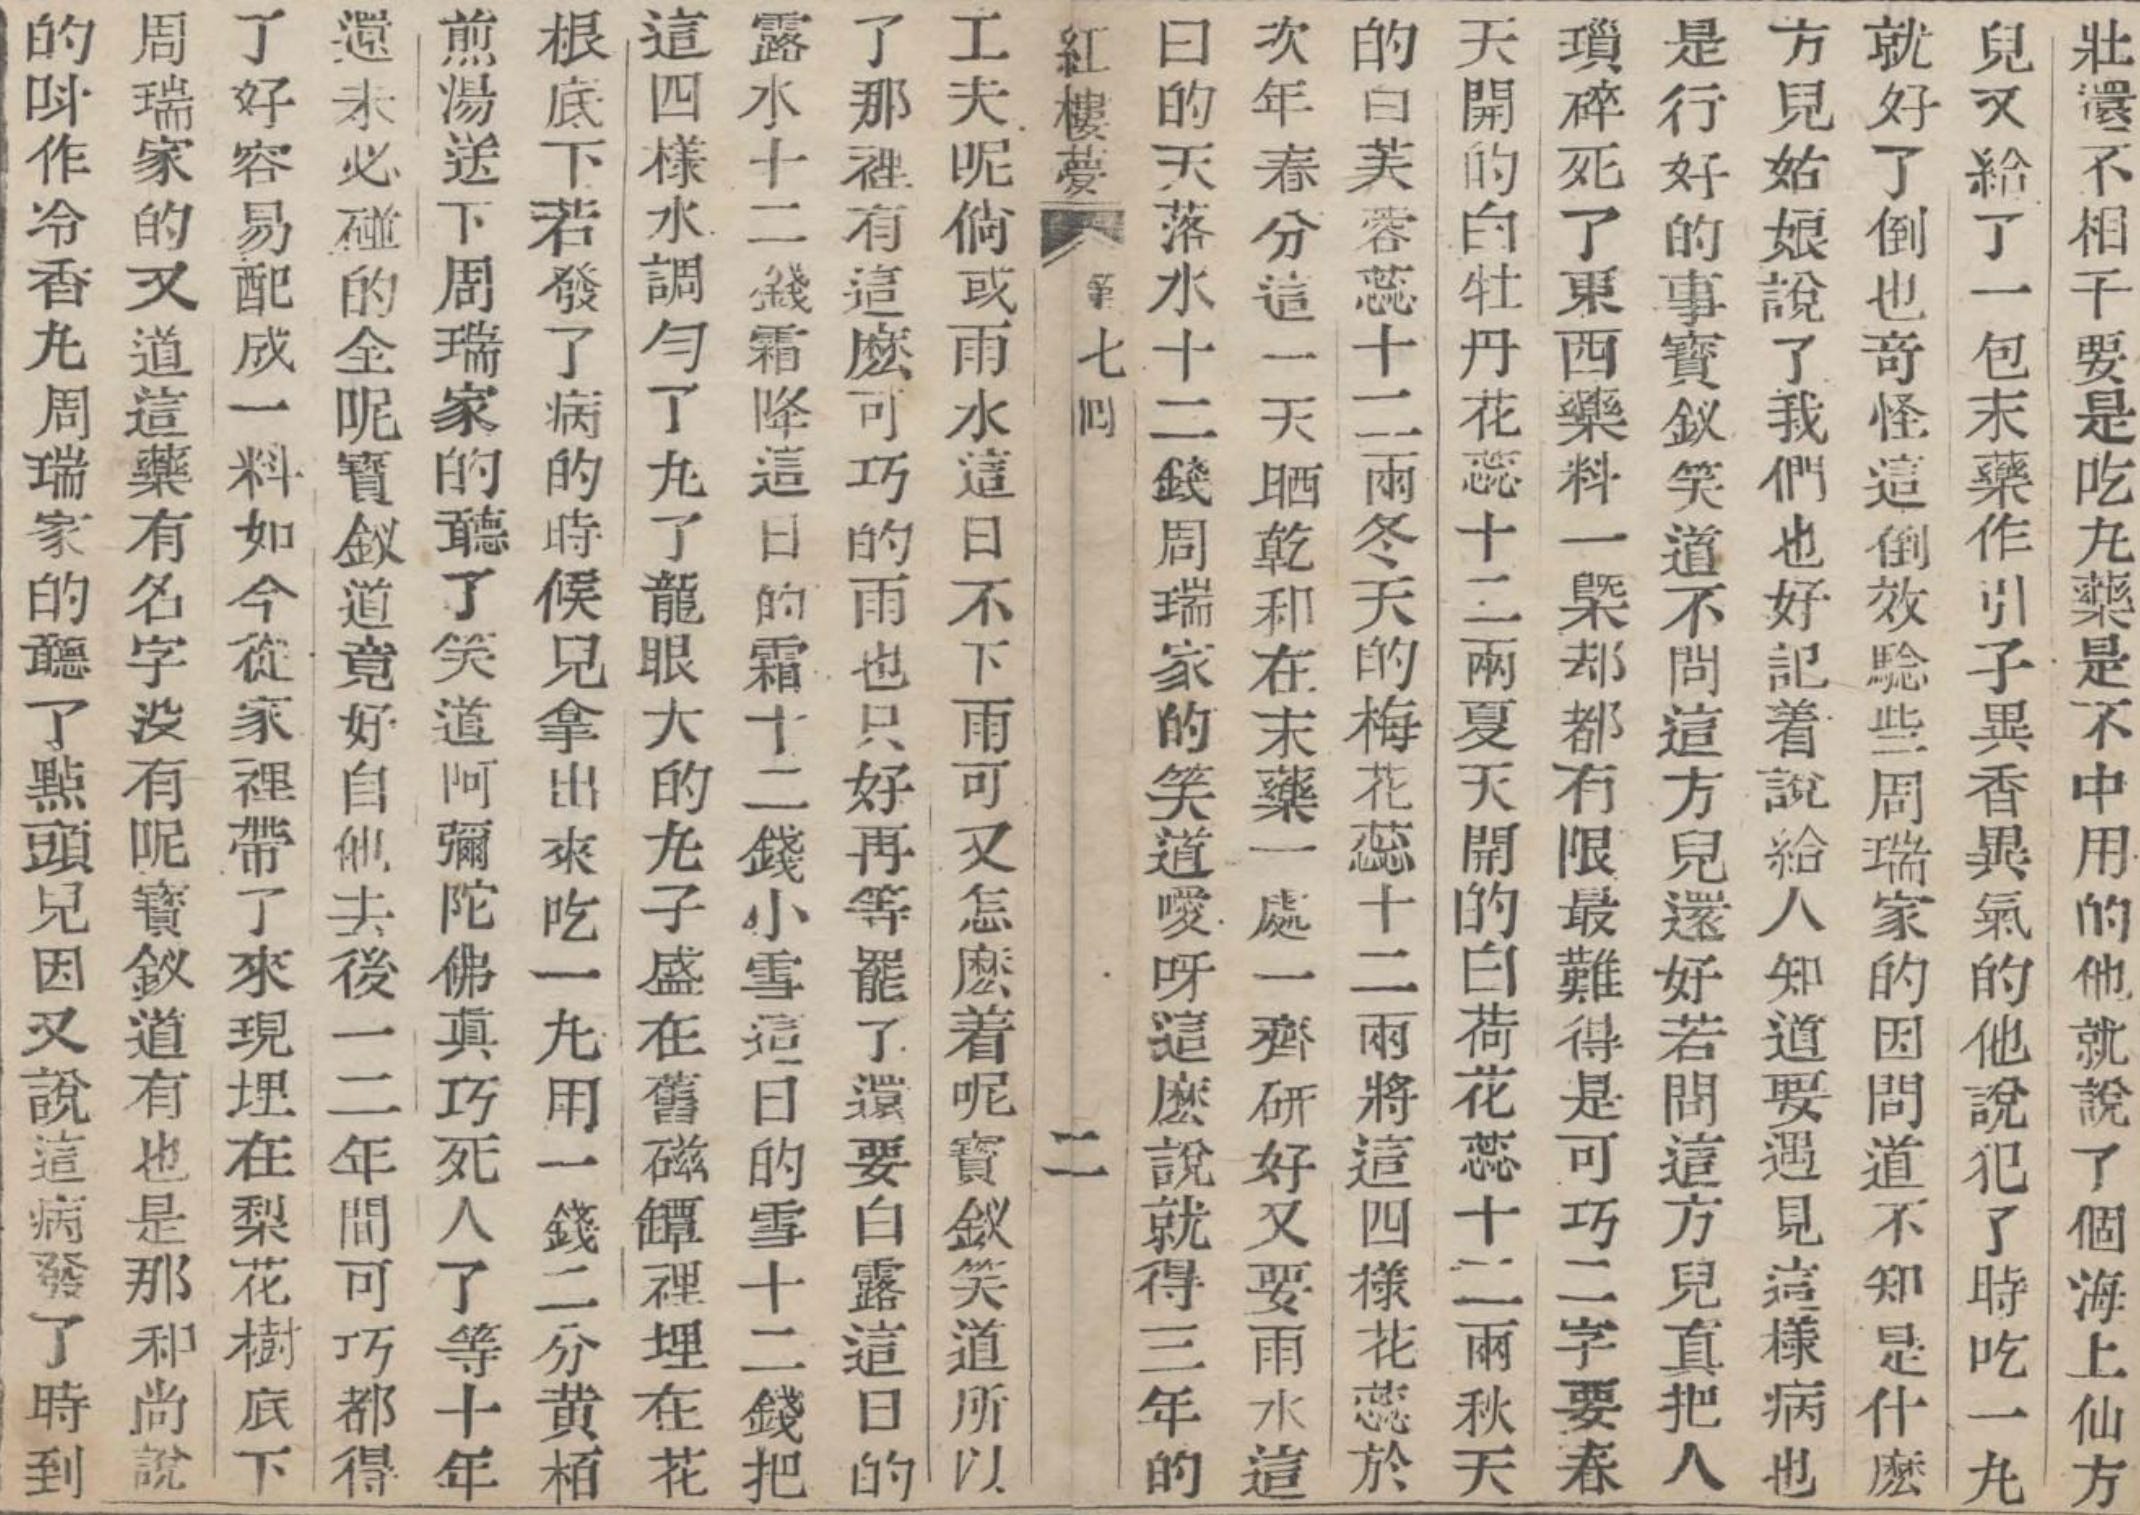 壯還不相干要是吃丸藥是不中用的他就說了個海上仙方
兒又給了一包末藥作引子異香異氣的他說犯了時吃一丸
就好了倒也奇怪這倒效驗些周瑞家的因問道不知是什麽
方兒姑娘說了我們也好記着說給人知道要遇見這樣病也
是行好的事寶釵笑道不問這方兒還好若問這方兒真把人
瑣碎死了東西藥料一槩却都有限最難得是可巧二字要春
天開的白牡丹花蕊十二兩夏天開的白荷花蕊十二兩秋天
的白芙蓉蕊十二兩冬天的梅花蕊十二兩將這四樣花蕊於
次年春分這一天晒乾和在末藥一處一齊研好又要雨水這
日的天落水十二錢周瑞家的笑道噯呀這麽說就得三年的
紅樓夢 第七囘 二
工夫呢倘或雨水這日不下雨可又怎麽着呢寶釵笑道所以
了那裡有這麽可巧的雨也只好再等罷了還要白露這日的
露水十二錢霜降這日的霜十二錢小雪這日的雪十二錢把
這四樣水調勻了丸了龍眼大的丸子盛在舊磁罈裡埋在花
根底下若發了病的時候兒拿出來吃一丸用一錢二分黄栢
煎湯送下周瑞家的聽了笑道阿彌陀佛眞巧死人了等十年
還未必碰的全呢寶釵道竟好自他去後一二年間可巧都得
了好容易配成一料如今從家裡帶了來現埋在梨花樹底下
周瑞家的又道這藥有名字没有呢寶釵道有也是那和尚說
的呌作冷香丸周瑞家的聽了點頭兒因又說這病發了時到